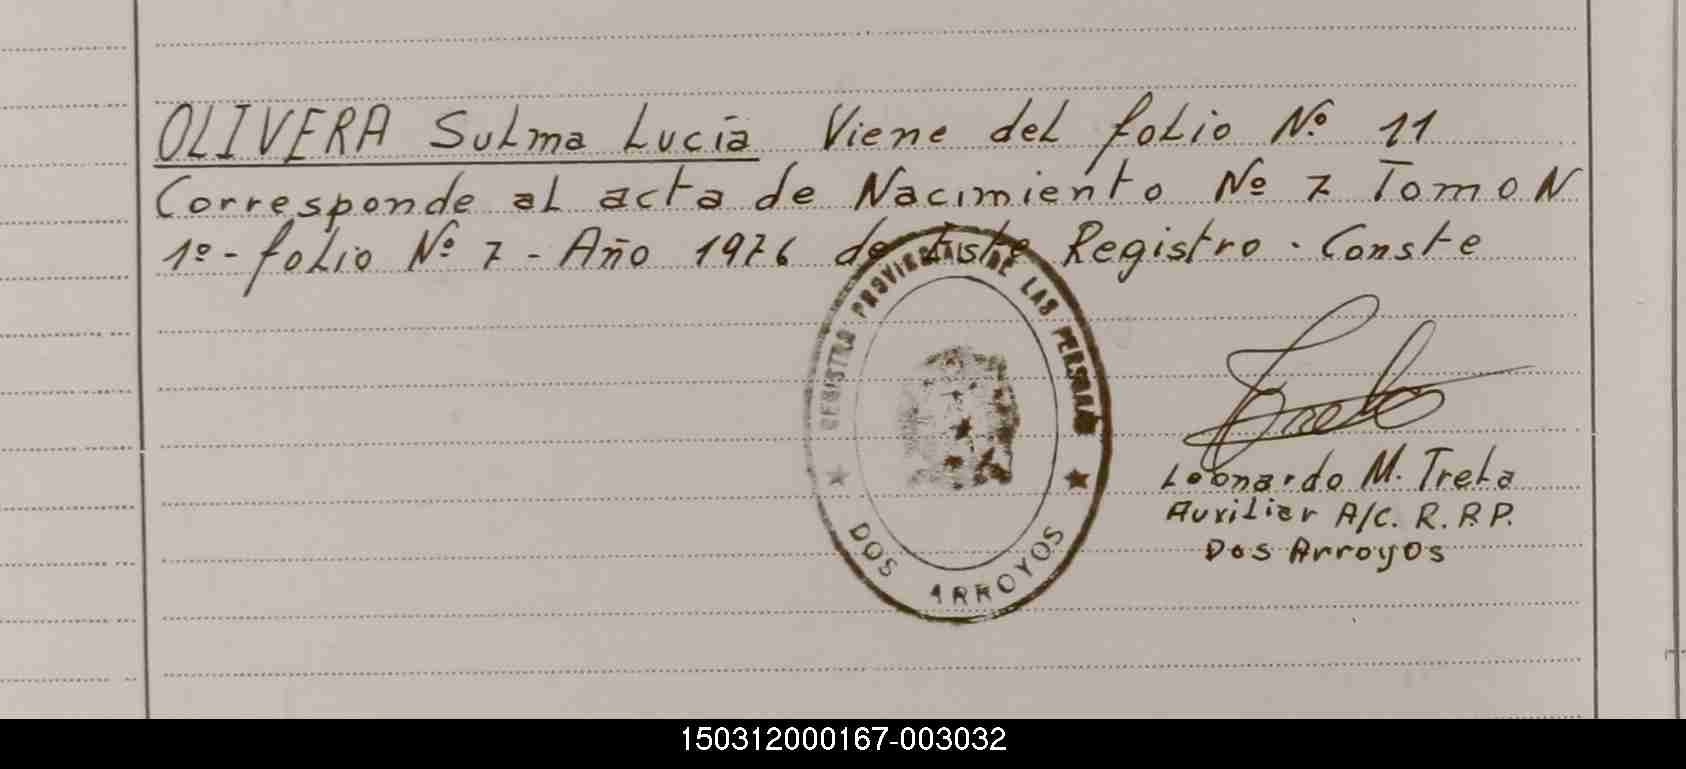 OLIVERA Sulma Lucía Viene del folio Nº 11
Corresponde al acta de Nacimiento Nº 7 Tomo N
1º - folio Nº 7 - Año 1976 de Este Registro. Conste
REGISTRO PROVINCIAL DE LAS PERSONAS
DOS ARROYOS
Leonardo M. Treta
Auxiliar A/C. R.P.P.
Dos Arroyos
150312000167-003032